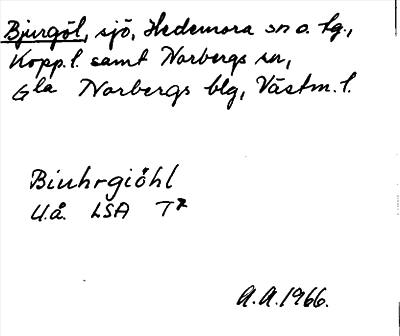 Bjurgöl, sjö, Hedemora sn o. tg.,
Kopp.l. samt Norbergs sn,
Gla Norbergs blg, Västm.l.
Biuhrgiöhl
U.å. LSA T7
A.A. 1966.